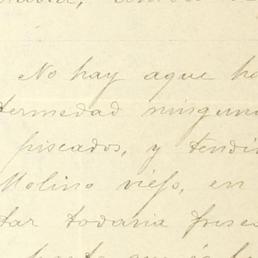 No hay aque ha
fermedad ninguna
piscados, y tendi
Molino viejo, en
tar todavia fres